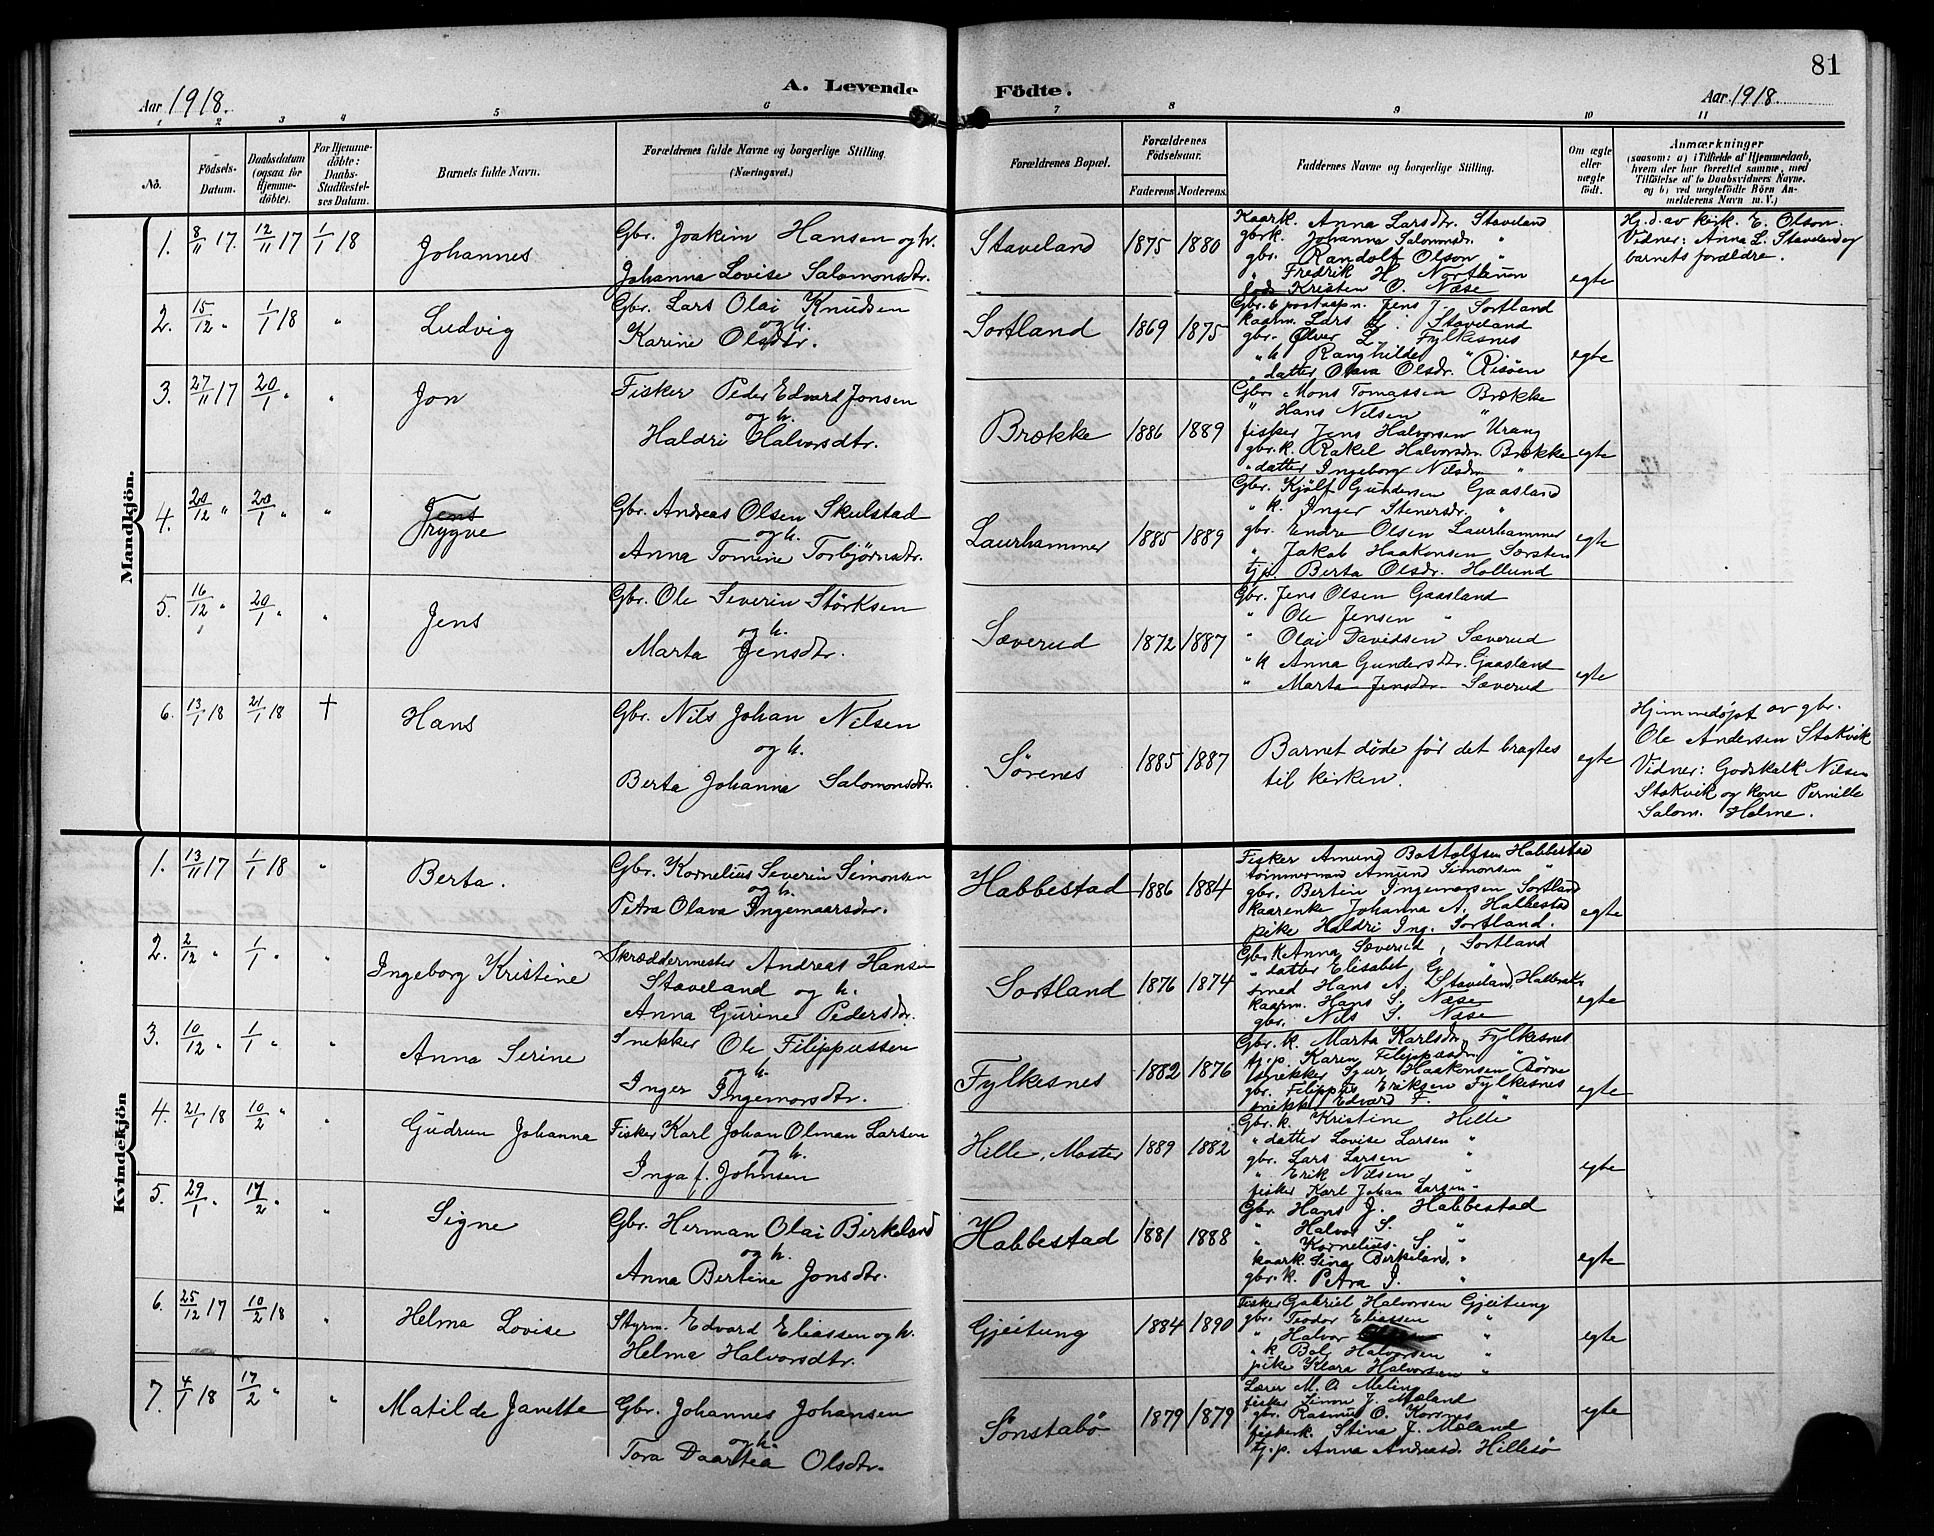 81
Aar 1918.
A. Levende
Födte.
Aar 1918
1 2 3 4 5 6 7 8 9 10 11
No.
Födsels-Datum.
Daabsdatum (ogsaa for Hjemmedöbte).
For Hjemmedöbte: Daabs-Stadfæstelses Datum.
Barnets fulde Navn.
Forældrenes fulde Navne og borgerlige Stilling. (Næringsvei.)
Forældrenes Bopæl.
Forældrenes Födselsaar.
Faderens. Moderens.
Faddernes Navne og borgerlige Stilling.
Om ægte eller uægte födt.
Anmærkninger
(saasom: a) i Tilfælde af Hjemmedaab, hvem der har forrettet samme, med Tilföielse af to Daabsvidners Navne, og b) ved uegtefödte Börn Anmelderens Navn m. V.)
Mandkjön.
1. 8/11 17. 12/11 17 1/1 18
Johannes
Gbr. Joakim Hansen og h.
Johanna Lovise Salomonsdtr.
Staveland 1875 1880
Kaark. Anna Larsdtr. Staveland
gbrk. Johanna Salomonsdr. "
gbr. Randolf Olson "
" Fredrik H. Nortun
Kristen O. Næse
egte
Hj. d. av kirk. E. Olson.
Vidner: Anna L. Staveland og
barnets forældre.
2. 15/12 " 1/1 18 "
Ludvig
Gbr. Lars Olai Knudsen
og h.
Karine Olsdtr.
Sortland 1869 1875
Gbr. & postaapn. Jens J. Sortland
kaarm. Lars L. Staveland
gbr. Ølver L. Fylkesnes
" k Ranghilde "
" datter Olava Olsdr. Risöen
egte
3. 27/11 17 20/1 " "
Jon
Fisker Peder Edvard Jonsen
og h.
Haldri Halvorsdtr.
Brække 1886 1889
Gbr. Mons Tomassen Brække
" Hans Nilsen "
fisker Jens Halvorsen Urang
gbr. k. Rakel Halvorsdr. Brække
" datter Ingeborg Nilsdr. "
egte
4. 20/12 " 20/1 " "
Jens
Trygve
Gbr. Andreas Olsen Skulstad
og h.
Anna Tomine Torbjørnsdtr.
Laurhammer 1885 1889
Gbr. Kjölf Gundersen Gaasland
" k. Inger Stenersdr. "
gbr. Endre Olsen Laurhammer
" Jakob Haakonsen Sørsten
tj.p. Berta Olsdr. Hollund
egte
5. 16/12 " 20/1 " "
Jens
Gbr. Ole Severin Störksen
og h.
Marta Jensdtr.
Sæverud 1872 1887
Gbr. Jens Olsen Gaasland
" Ole Jensen "
" Olai Davidsen Sæverud
" k Anna Gundersdtr. Gaasland
" Marta Jensdtr. Sæverud
egte
6. 13/1 18 21/1 18 †
Hans
Gbr. Nils Johan Nilsen
og h.
Berta Johanna Salomonsdtr.
Sörenes 1885 1887
Barnet döde för det bragtes
til kirken.
egte
Hjemmedöpt av gbr.
Ole Andersen Stokvik
Vidner: Godskalk Nilsen
Stokvik og kone Pernille
Salom. Holme.
Kvindekjön
1. 13/11 17 1/1 18 "
Berta.
Gbr. Kornelius Severin Simonsen
og h.
Petra Olava Ingemaarsdr.
Habbestad 1886 1884
Fisker Amund Bottolfsen Habbestad
tömmerman Amund Simonsen "
gbr. Bertin Ingemarsen Sortland
kaarenke Johanna A. Habbestad
pike Haldri Ing. Sortland.
egte
2. 2/12 " 1/1 " "
Ingeborg Kristine
Skræddermester Andreas Hansen
Staveland og h.
Anna Gurine Pedersdr.
Sortland 1876 1874
Gbr. k Anna Sæverud, Sortland
" datter Elisabet G. "
smed Hans A. Staveland
kaarm. Hans S. Næse
gbr. Nils S. Næse
egte
3. 10/12 " 1/1 " "
Anna Serine
Snekker Ole Filippussen
og h.
Inger Ingemorsdtr.
Fylkesnes 1882 1876
Gbr. k. Marta Karlsdr. Fylkesnes
tj.p. Karen Filippusdr. "
snekker Sjur Haakonsen Börve
gbr. Filippus Eriksen Fylkesnes
snekk. Edvard F. "
egte
4. 21/1 18 10/2 " "
Gudrun Johanna
Fisker Karl Johan Olman Larsen
og h.
Inga f. Johnsen
Hille, Moster 1889 1882
Gbr. k. Kristine Hille
" datter Lovise Larsen "
gbr. Lars Larsen "
" Erik Nilsen "
fisker Karl Johan Larsen "
egte
5. 29/1 " 17/2 " "
Signe
Gbr. Herman Olai Birkeland
og h.
Anna Bertine Jonsdtr.
Habbestad 1881 1888
Gbr. Hans J. Habbestad
" Halvor S. "
" Kornelius S. "
kaark. Sina Birkeland. "
gbr. k. Petra I. "
egte
6. 25/12 17 10/2 18 "
Helma Lovise
Styrm. Edvard Eliassen og h.
Helma Halvorsdtr.
Gjeitung 1884 1890
Fisker Gabriel Halvorsen Gjeitung
gbr. Teodor Eliassen "
" Halvor "
" k Bol. Halvorsen "
pike Klara Halvorsen "
egte
7. 4/1 18 17/2 " "
Matilde Janette
Gbr. Johannes Johansen
og h.
Tora Daartea Olsdtr.
Sönstabö 1879 1879
Lærer M. O. Meling
fisker Simon J. Mæland
gbr. Rasmus O. Kornes
fiskerk. Stina J. Mæland
tj.p. Anna Andreasd. Hillesö
egte